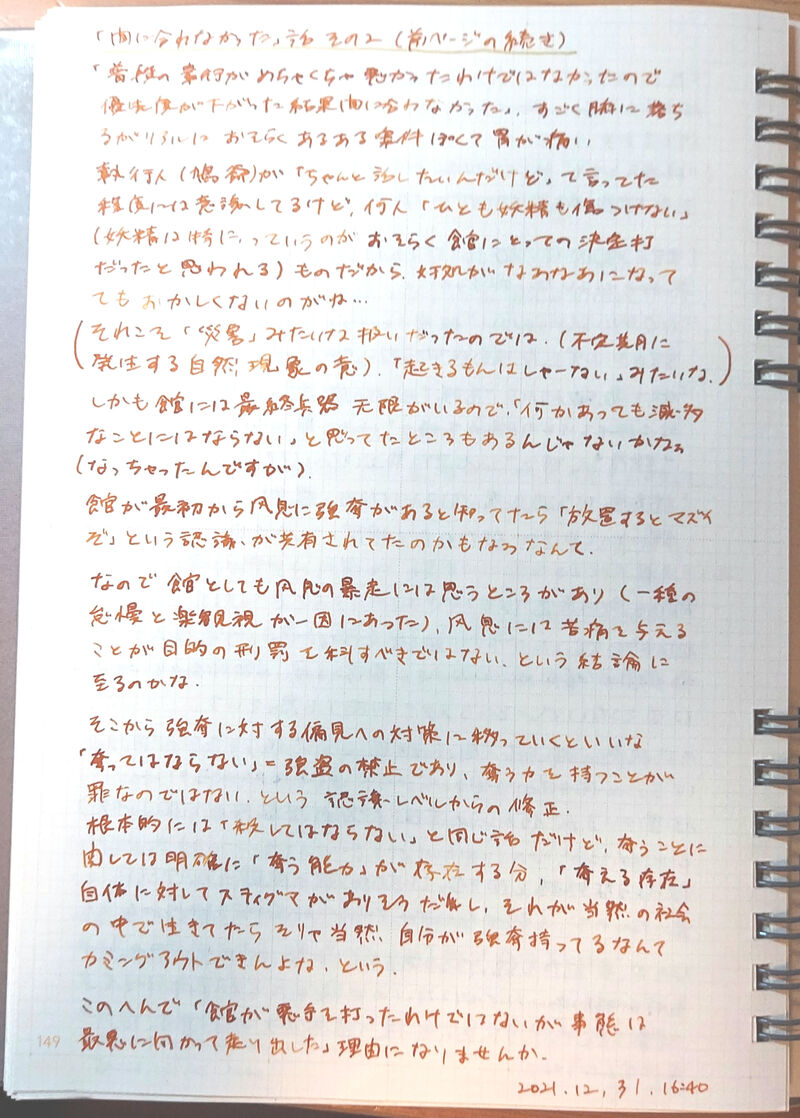 「間に合わなかった」話 その2 (前ページの続き)
「普段の素行がめちゃくちゃ悪かったわけではなかったので
優先度が下がった結果間に合わなかった」、すごく腑に落ち
るがリアルに おそらくあるある案件ぽくて胃が痛い
執行人(鳩老)が「ちゃんと話したいんだけど」って言ってた
程度には意識してるけど、何人「ひとも妖精も傷つけない」
(妖精は特に、っていうのが おそらく館にとっての決定打
だったと思われる)ものだから、対処がなあなあになって
てもおかしくないのがね…
(それこそ「災害」みたいな扱いだったのでは。(不定期に
発生する自然現象の意)、「起きるもんはしゃーない」みたいな。)
しかも館には最終兵器 无限がいるので、「何かあっても滅多
なことにはならない」と思ってたところもあるんじゃないかなぁ
(なっちゃったんですが)。
館が最初から風息に強奪があると知ってたら「放置するとマズイ
ぞ」という認識が共有されてたのかもなぁなんて。
なので館としても風息の暴走には思うところがあり(一種の
怠慢と楽観視が一因にあった)、風息には苦痛を与える
ことが目的の刑罰を科すべきではない、という結論に
至るのかな。
そこから強奪に対する偏見への対策に移っていくといいな
「奪ってはならない」=強盗の禁止であり、奪う力を持つことが
罪なのではない、という 認識レベルからの修正。
根本的には「殺してはならない」と同じ話だけど、奪うことに
関しては明確に「奪う能力」が存在する分、「奪える存在」
自体に対してスティグマがありそうだし、それが当然の社会
の中で生きてたらそりゃ当然 自分が強奪持ってるなんて
カミングアウトできんよな、という。
このへんで「館が悪手を打ったわけではないが事態は
最悪に向かって走り出した」理由になりませんか。
149
2021.12.31.16:40